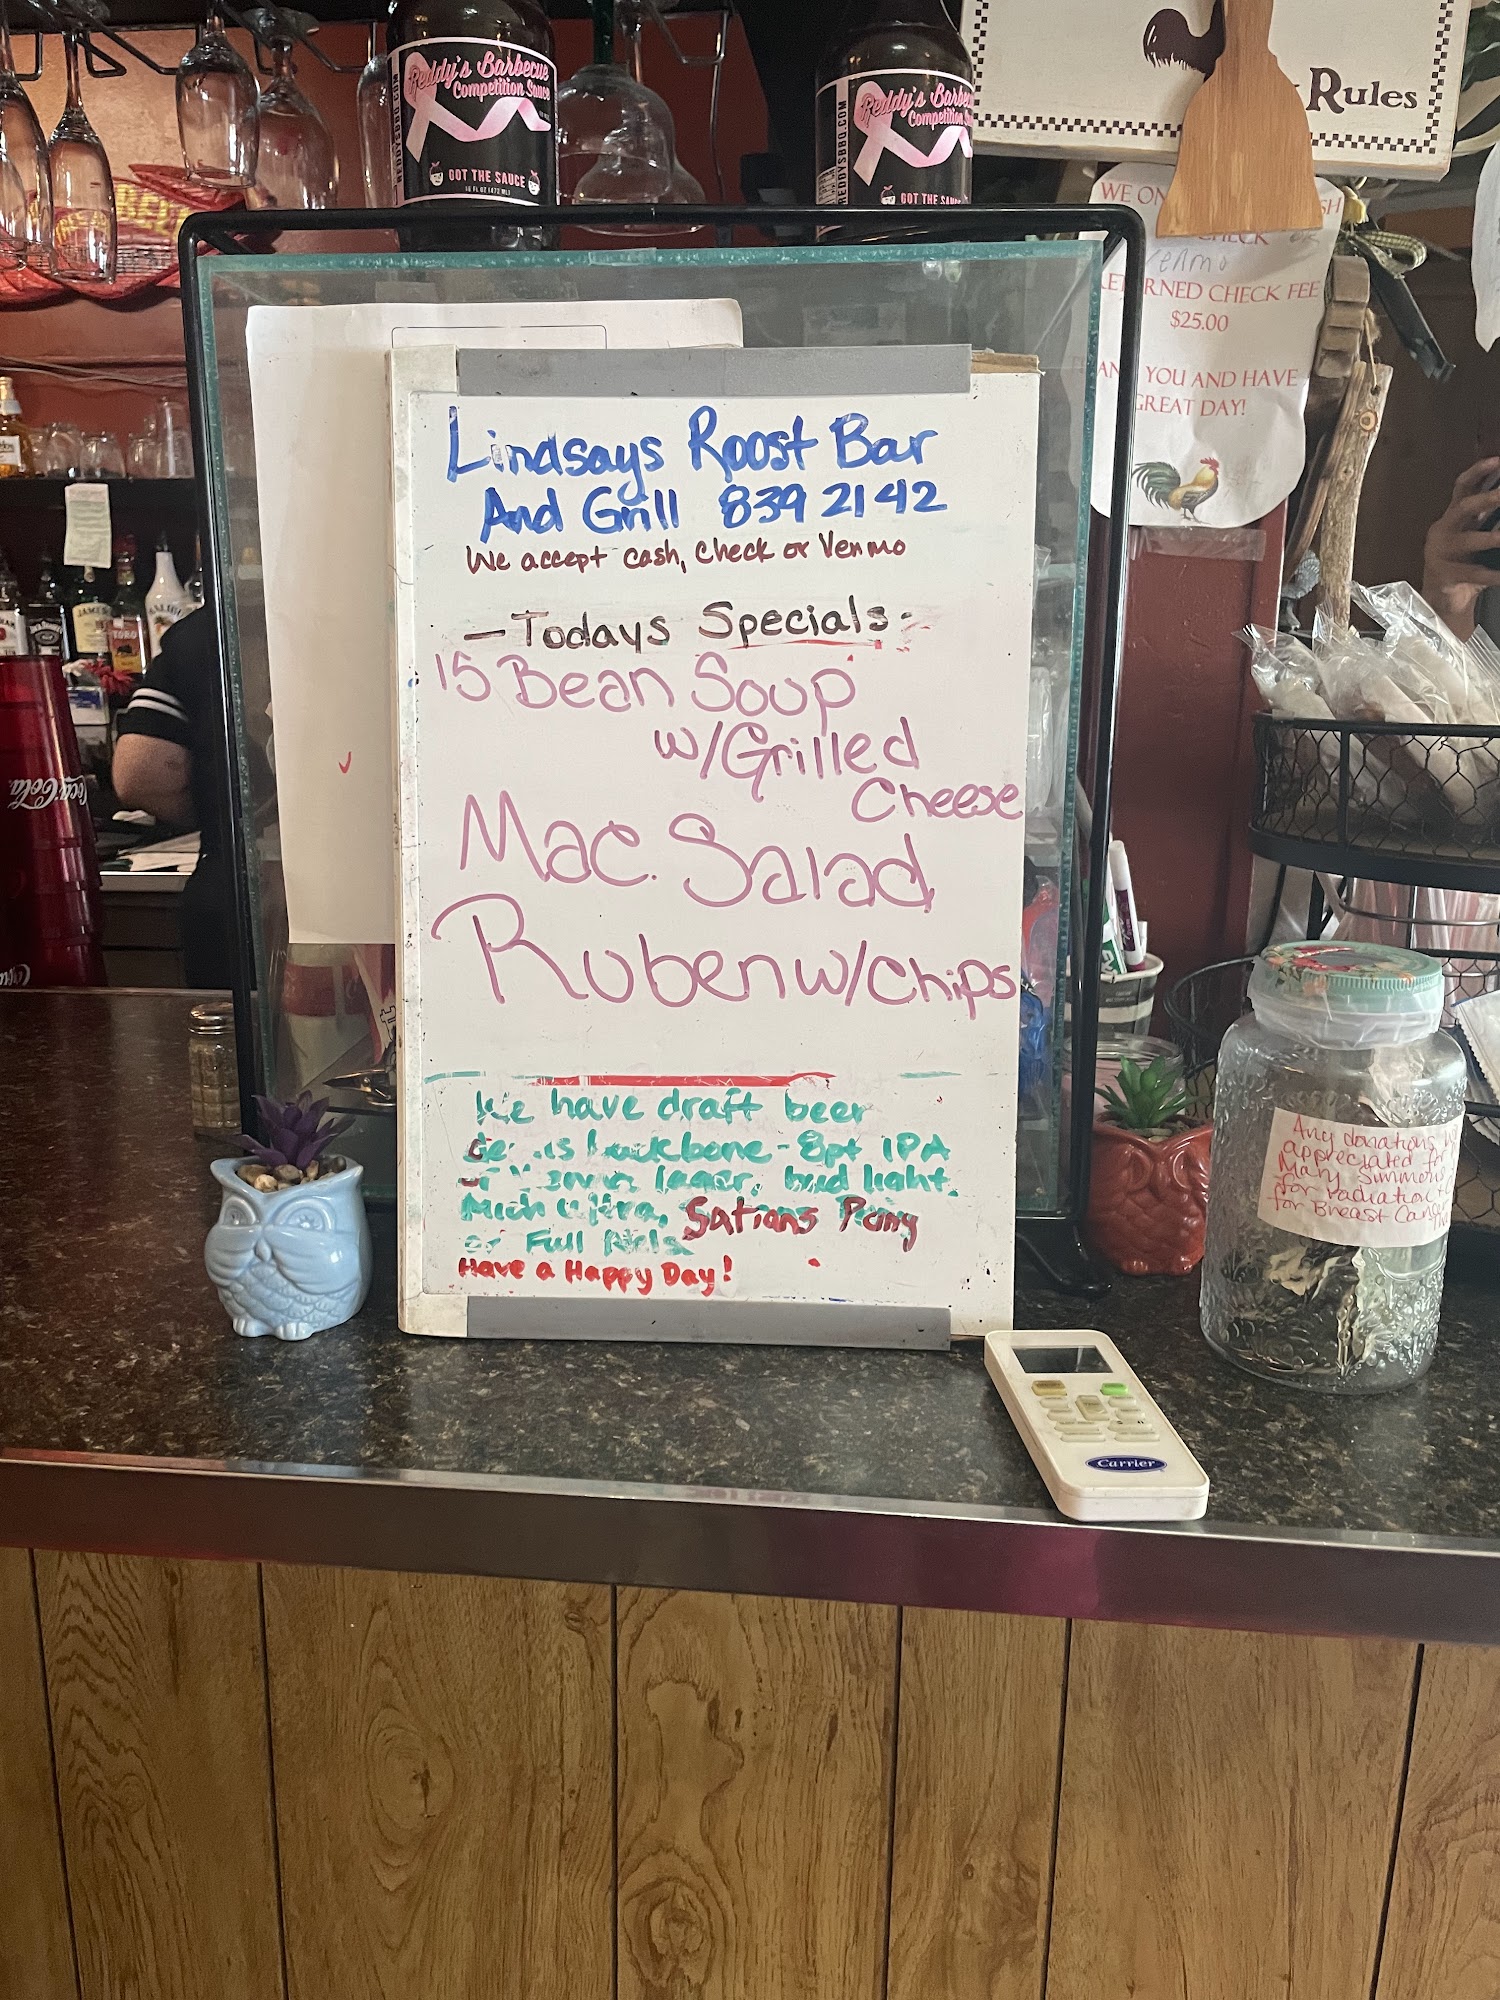 Reddy's Barbecue
Competition Sauce
REDDYSBBQ.COM
GOT THE SAUCE
16 FL OZ (472 ML)
Reddy's
Competition
GOT THE
Rules
WE
CHECK
Venmo
RETURNED CHECK FEE
$25.00
YOU AND HAVE
GREAT DAY!
Lindsays Roost Bar
And Grill 839 2142
We accept cash, Check or Venmo
- Todays Specials -
15 Bean Soup
w/Grilled
Cheese
Mac. Salad
Ruben w/chips
We have draft beer
backbone - 8pt IPA
lager, bud light,
Mich Ultra, Sations Pcing
or Full
Have a Happy Day!
Coca-Cola
Any donations
appreciated for
Mary Simmons
for radiation
for Breast
Carrier